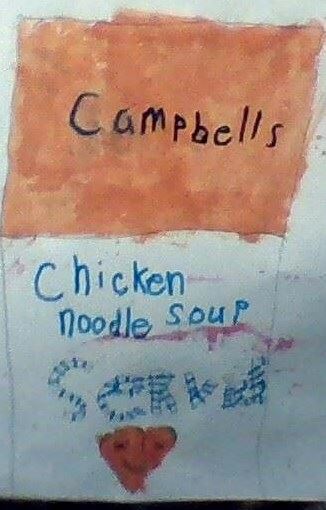 Campbells
Chicken
noodle soup